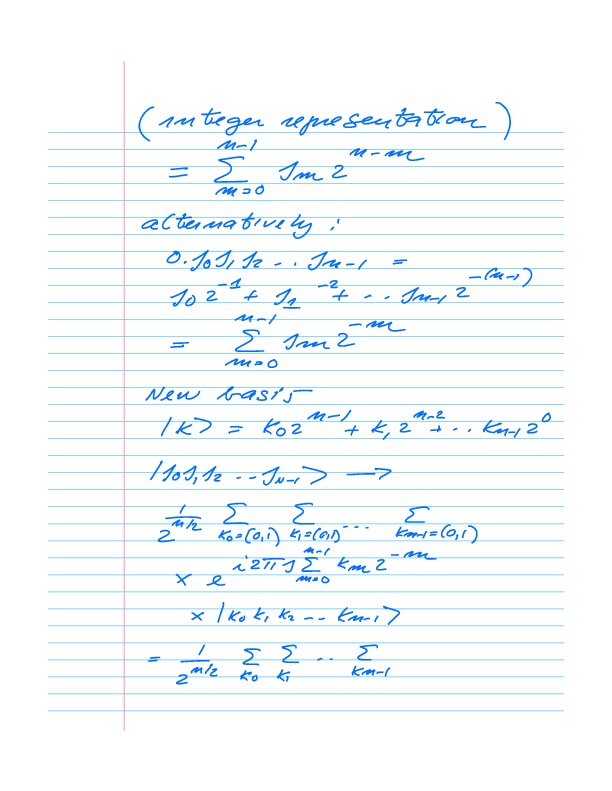 (integer representation)
= \sum_{m=0}^{n-1} j_m 2^{n-m}
alternatively :
0.j_0 j_1 j_2 .. j_{n-1} =
j_0 2^{-1} + j_1 2^{-2} + .. j_{n-1} 2^{-(n-1)}
= \sum_{m=0}^{n-1} j_m 2^{-m}
New basis
|k> = k_0 2^{n-1} + k_1 2^{n-2} + .. k_{n-1} 2^0
|j_0 j_1 j_2 -- j_{n-1}> →
\frac{1}{2^{n/2}} \sum_{k_0=(0,1)} \sum_{k_1=(0,1)} ... \sum_{k_{n-1}=(0,1)}
× e^{i 2π j \sum_{m=0}^{n-1} k_m 2^{-m}}
× |k_0 k_1 k_2 -- k_{n-1}>
= \frac{1}{2^{n/2}} \sum_{k_0} \sum_{k_1} .. \sum_{k_{n-1}}